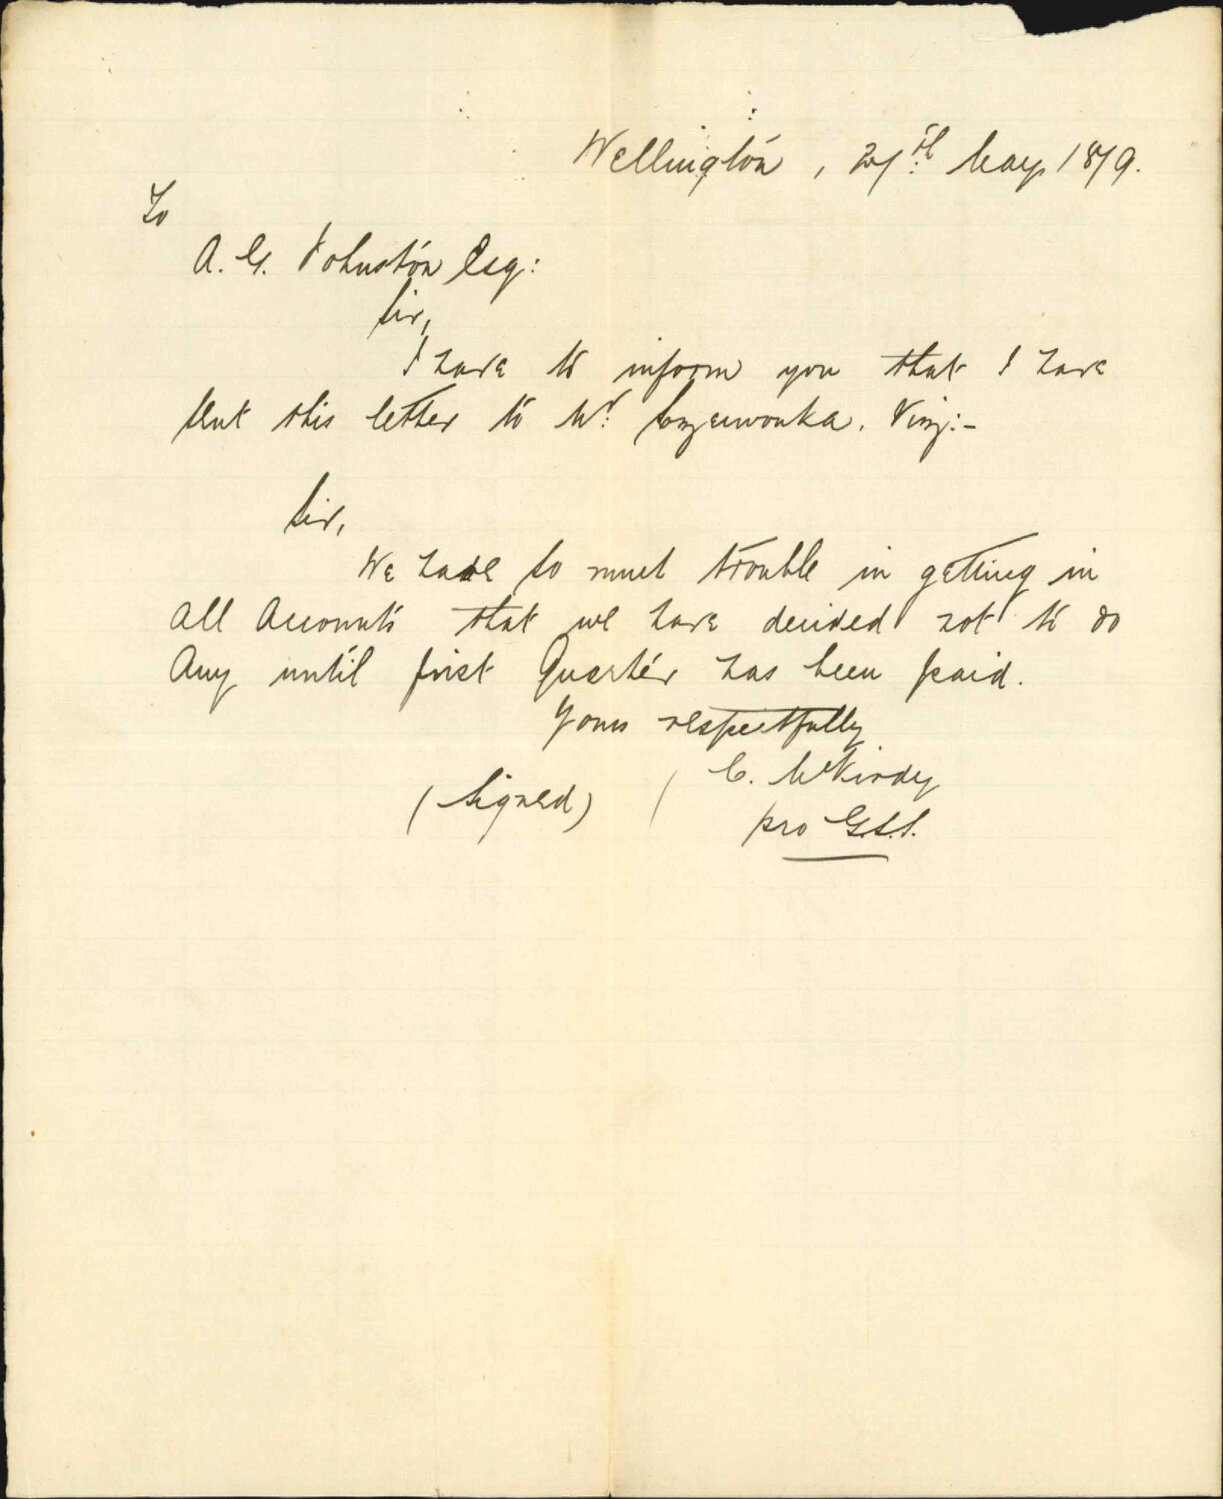 Wellington, 27th May 1879.
To
A. G. Johnston Esq:
Sir,
I have to inform you that I have
sent this letter to Mr. Czerwonka. Viz:-
Sir,
We have so much trouble in getting in
all Accounts that we have decided not to do
Any until first Quarter has been paid.
Yours respectfully
(Signed) C. McKirdy
pro G.S.S.